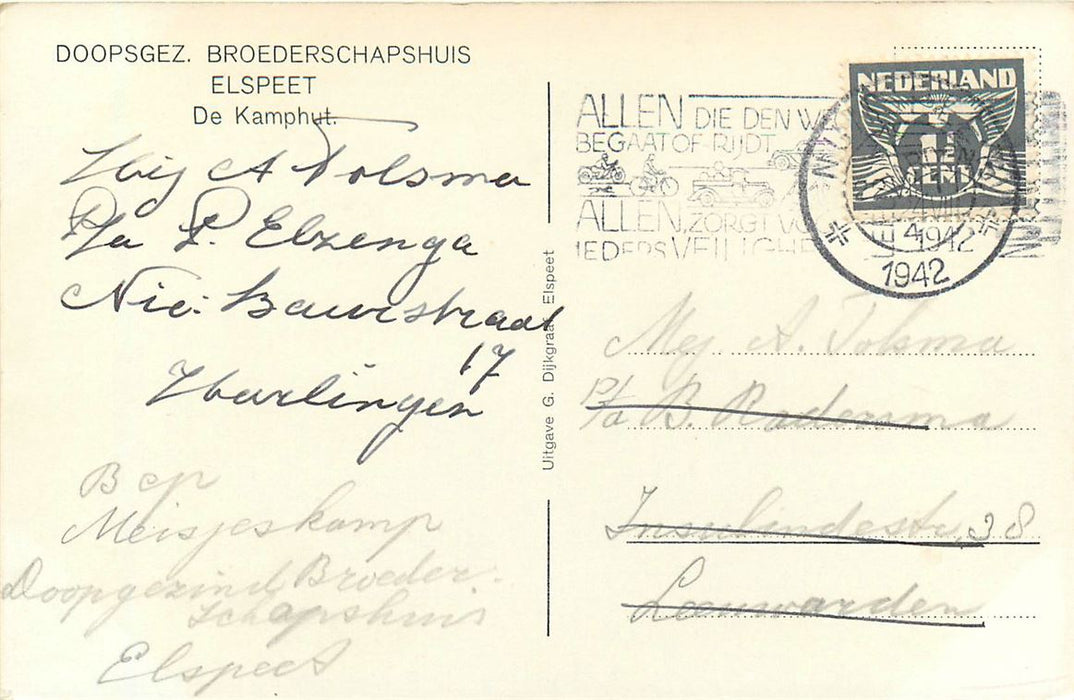 DOOPSGEZ. BROEDERSCHAPSHUIS
ELSPEET
De Kamphut.
A Tolsma
P/a P. Elzenga
Nie: Bauwstraat
17
Harlingen
Bep
Meisjeskamp
Doopgezind Broeder-
schapshuis
Elspeet
Uitgave G. Dijkgraaf Elspeet
ALLEN DIE DEN W
BEGAAT OF RIJDT
ALLEN, ZORGT VO
IEDERS VEILIGHE
NEDERLAND
1942
1942
Mej A. Tolsma
P/a B. Radersma
Insulindestr. 38
Leeuwarden